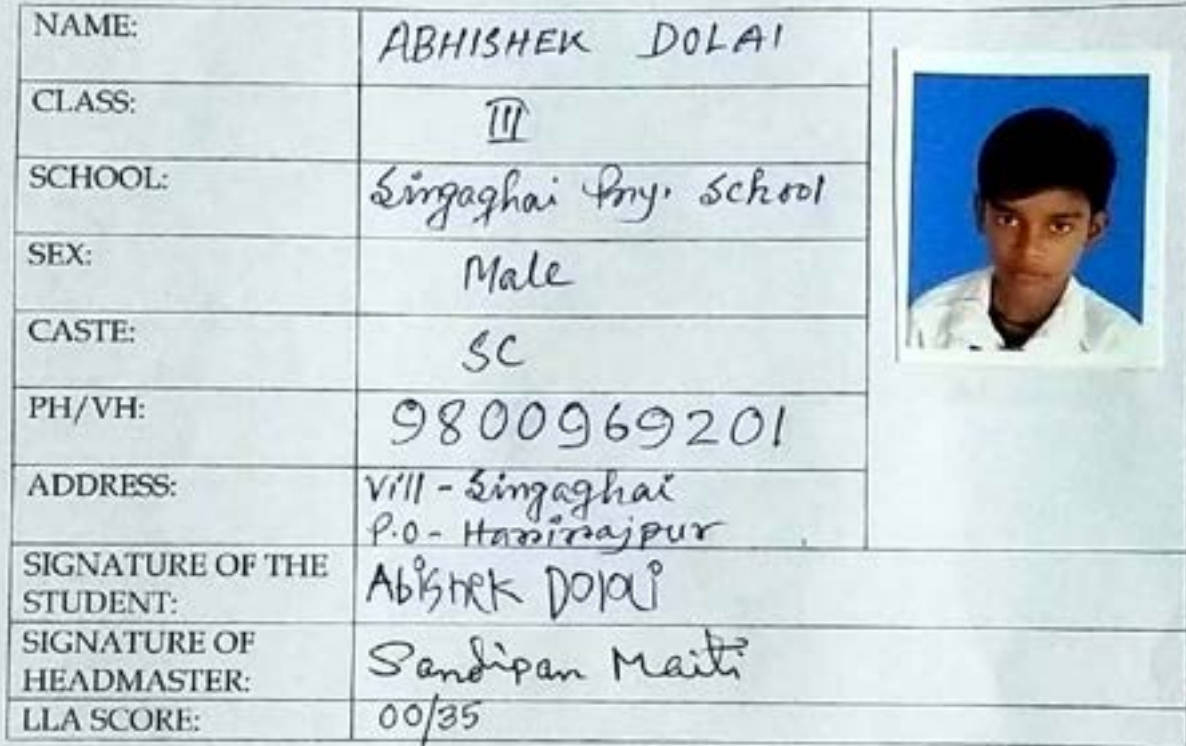 NAME: ABHISHEK DOLAI
CLASS: III
SCHOOL: Singaghai Pry. School
SEX: Male
CASTE: SC
PH/VH: 9800969201
ADDRESS: Vill - Singaghai
P.O - Harirajpur
SIGNATURE OF THE
STUDENT: Abishek Dolai
SIGNATURE OF
HEADMASTER: Sandipan Maiti
LLA SCORE: 00/35